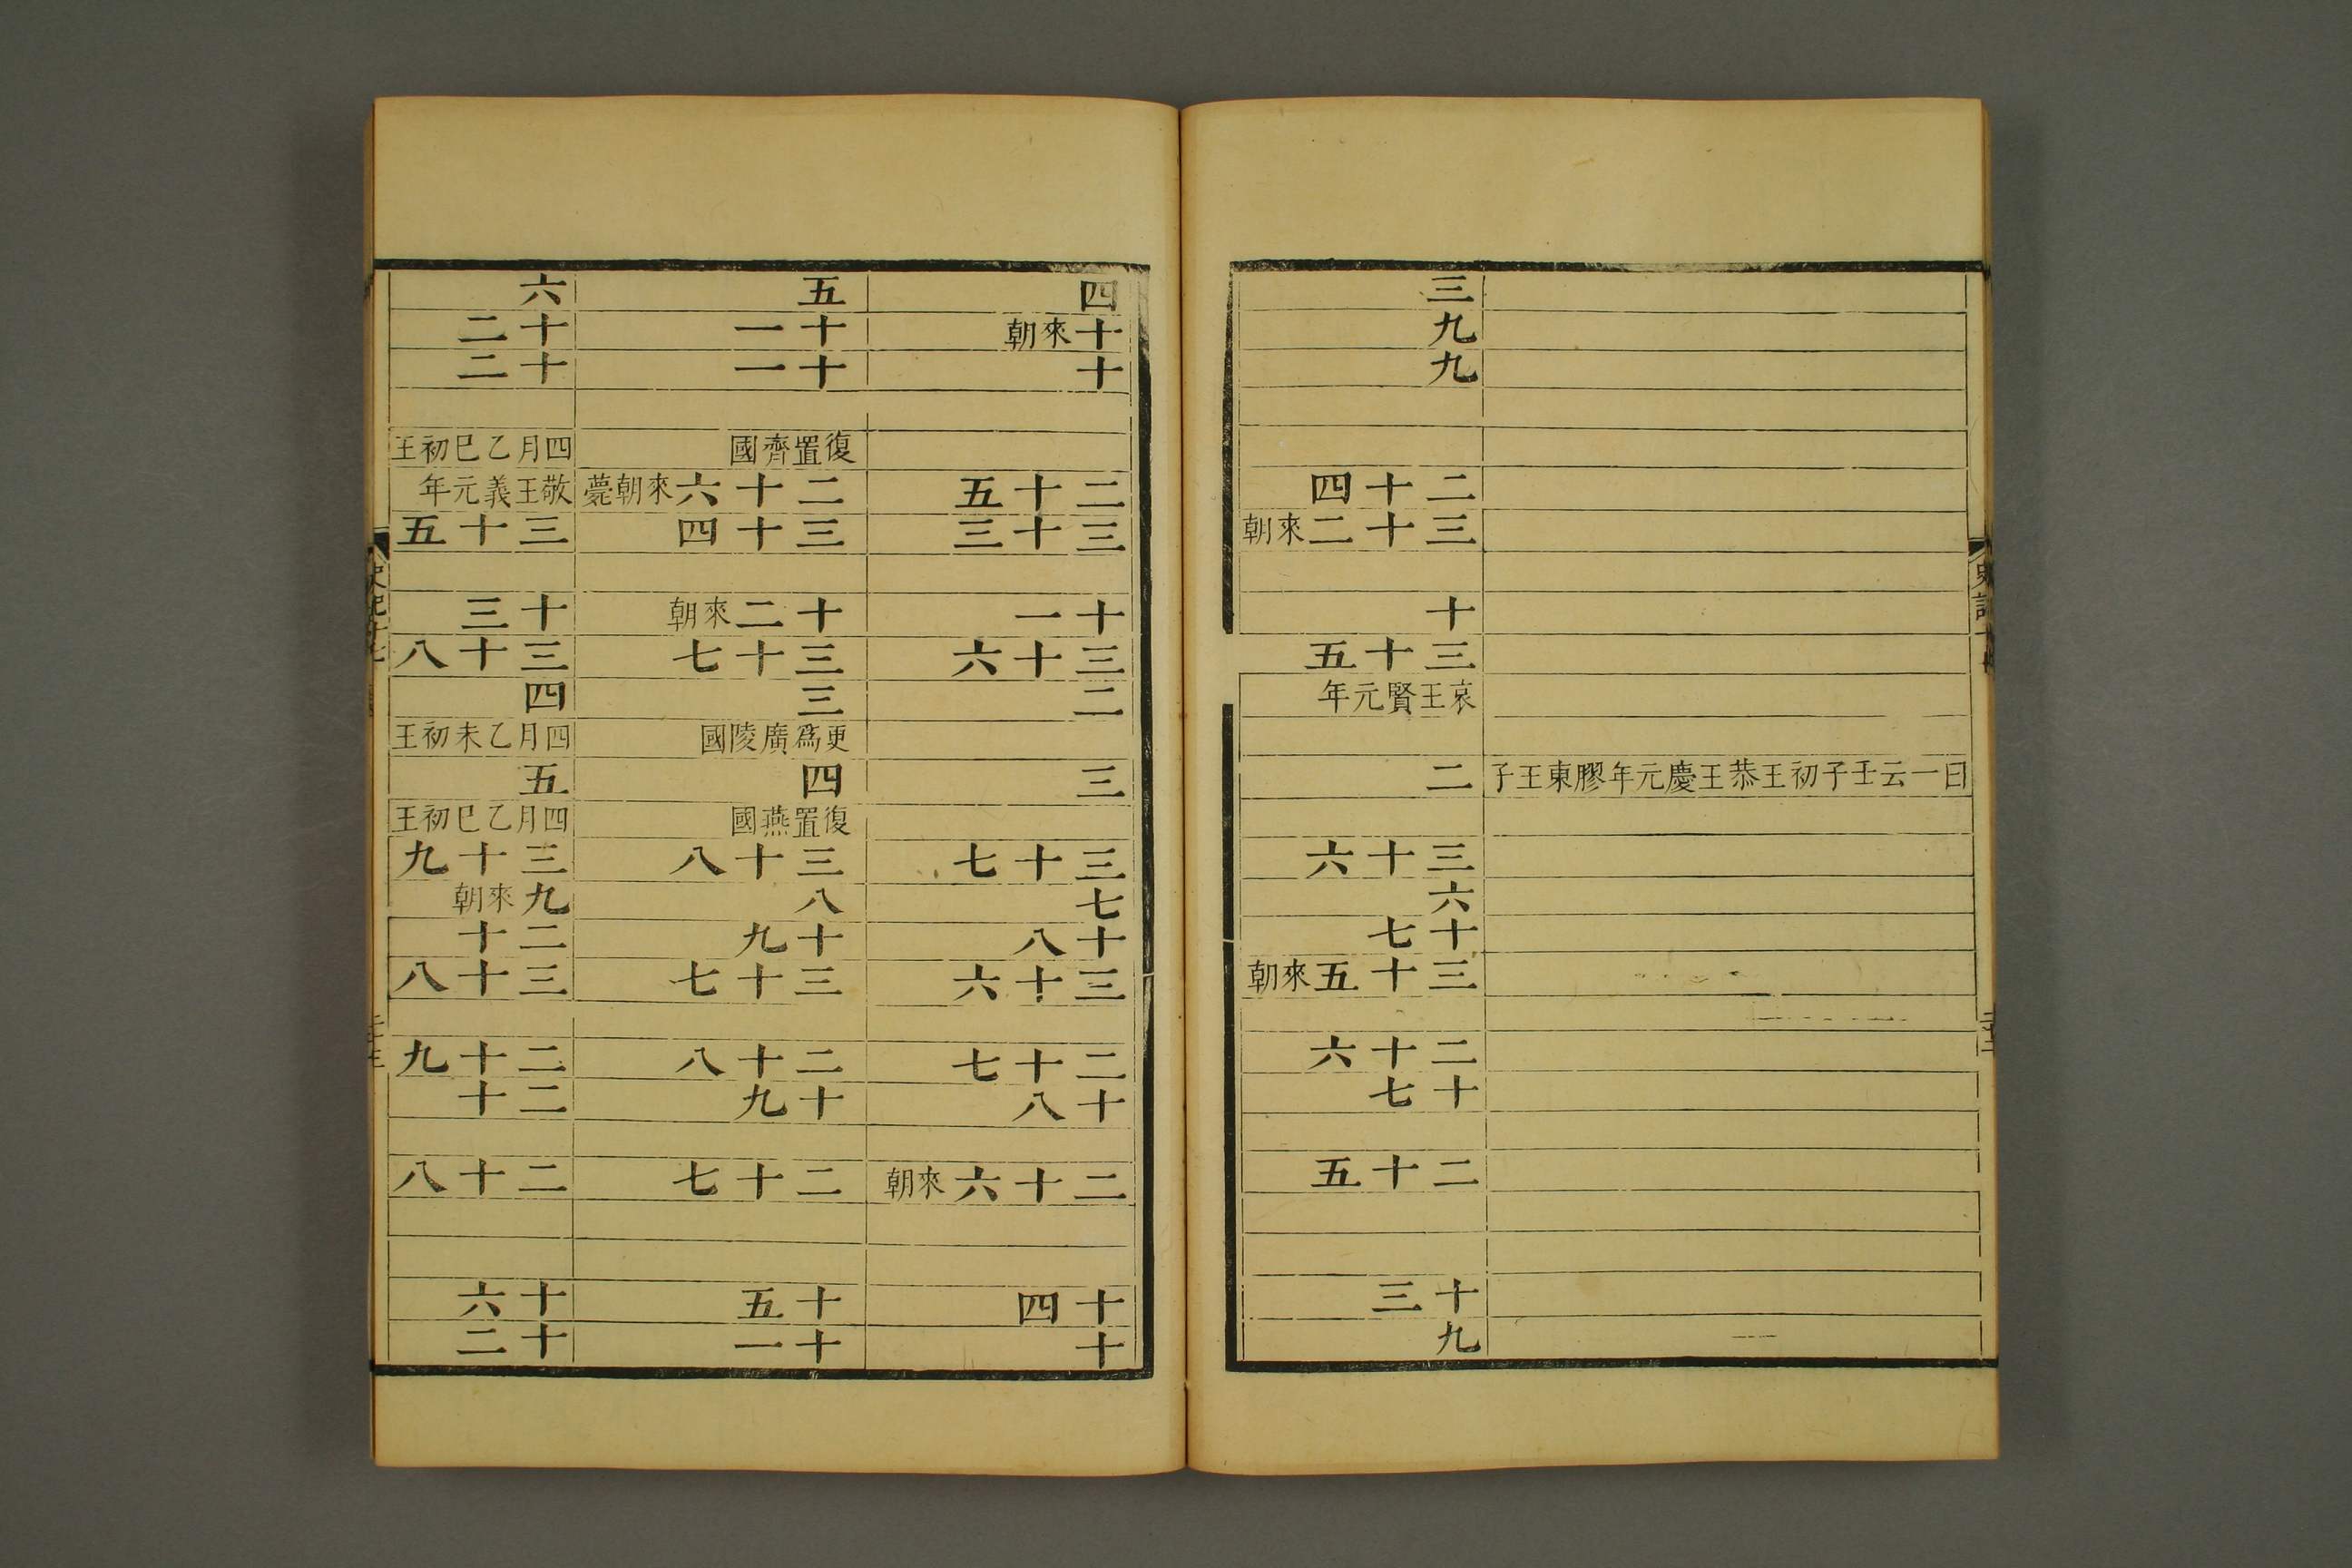 史記
曰一云壬子初王恭王慶元年膠東王子
三
九
九
二十四
三十二來朝
十
三十五
哀王賢元年
二
三十六
六
十七
三十五來朝
二十六
十七
二十五
十三
九
四
十來朝
十
二十五
三十三
十一
三十六
二
三
三十七
七
十八
三十六
二十七
十八
二十六來朝
十四
十
五
十一
十一
復置齊國
二十六來朝薨
三十四
十二來朝
三十七
三
更爲廣陵國
四
復置燕國
三十八
八
十九
三十七
二十八
十九
二十七
十五
十一
六
十二
十二
四月乙巳初王
敬王義元年
三十五
十三
三十八
四
四月乙未初王
五
四月乙巳初王
三十九
九來朝
二十
三十八
二十九
二十
二十八
十六
十二
史記十七